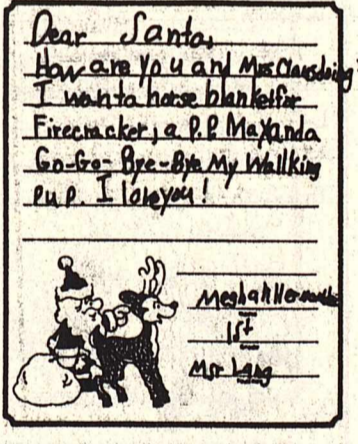 Dear Santa,
How are you and Mrs Claus doing?
I want a horse blanket for
Firecracker, a P.P. Max and a
Go-Go- Bye-Bye My Wallking
PuP. I love you!
Meghan
1st
Mr Lang